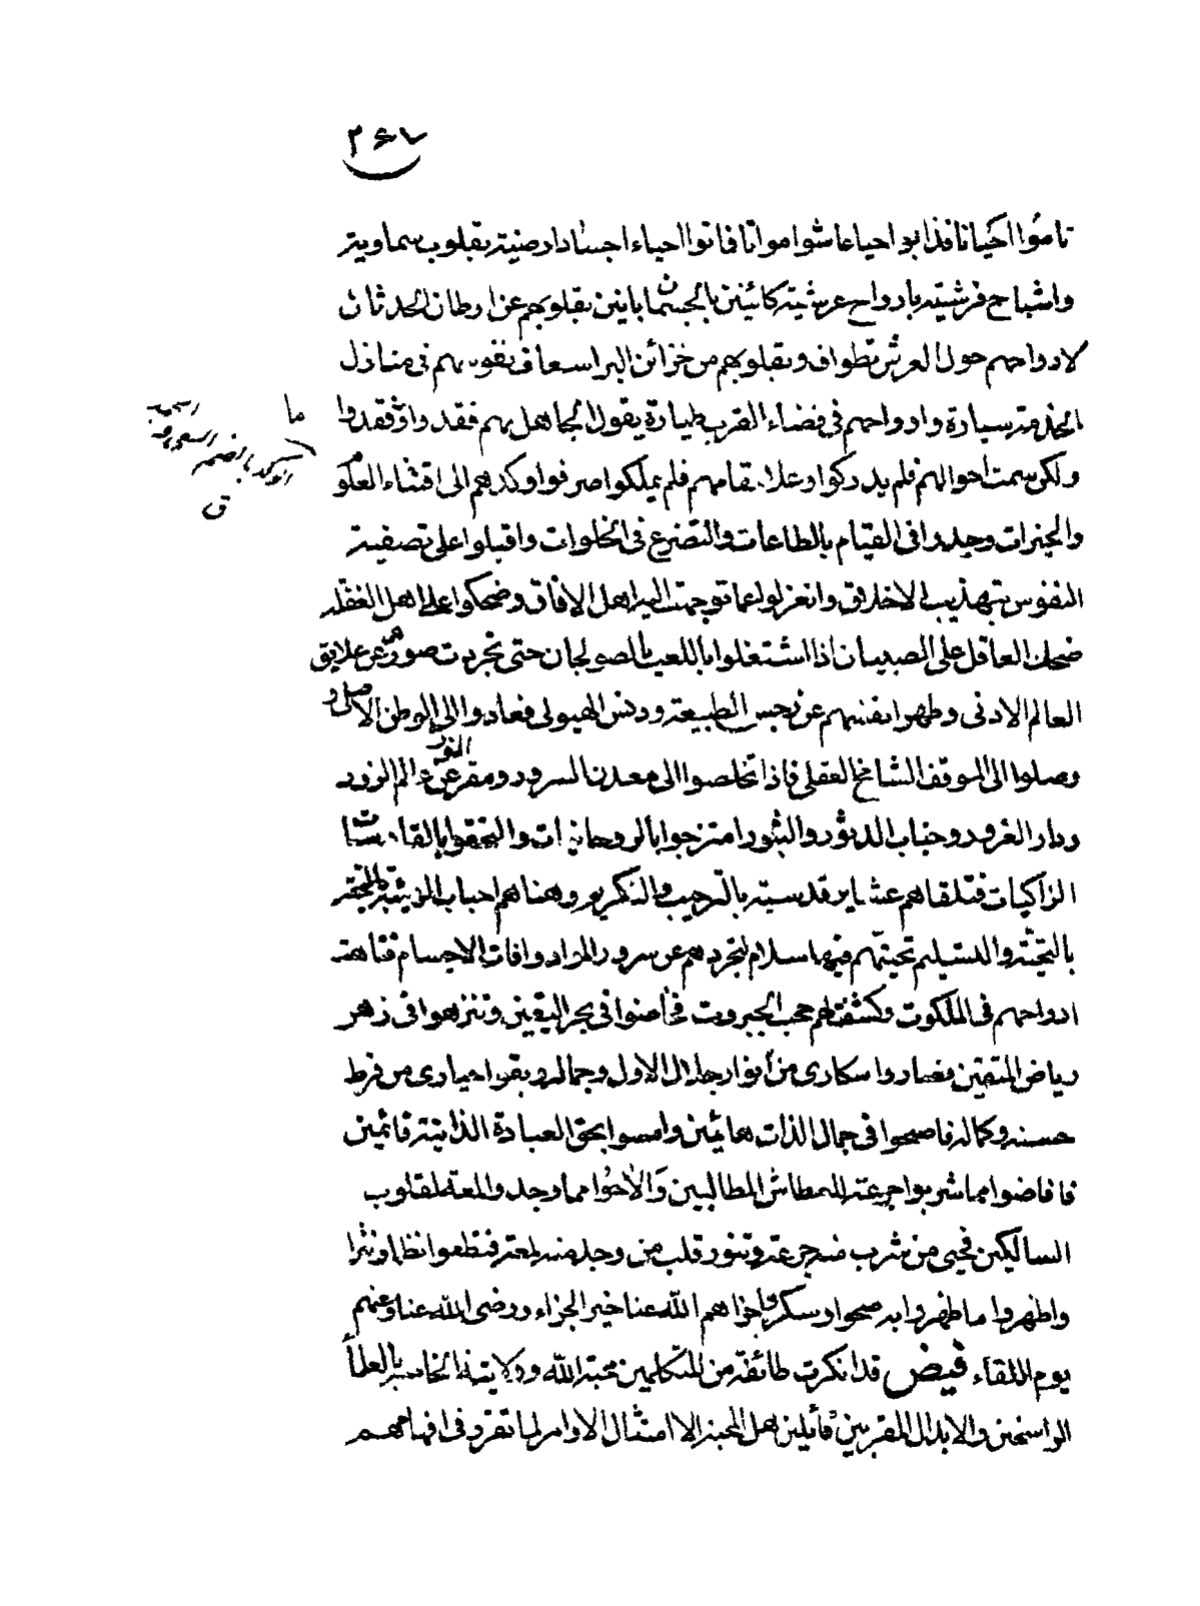 ٣٤٧
ناموا احيانا فذابوا احيا عاشوا مواتا فماتوا احياء اجساد ارضية بقلوب سماوية
واشباح فرشية بارواح عرشية كائنين بالجثمان باينين بقلوبهم عن اوطان الحدثان
لارواحهم حول العرش تطواف وبقلوبهم من خزائن البر اسعاف نفوسهم في منازل
الخدمة سيارة وارواحهم في فضاء القرب طيارة يقول الجاهل بهم فقدوا وما فقدوا
ولكن سمت احوالهم فلم يدركوا وعلا مقامهم فلم يملكوا صرفوا وكدهم الى اقتناء العلوم
والخيرات وجدوا في القيام بالطاعات والتضرع في الخلوات واقبلوا على تصفية
النفوس بتهذيب الاخلاق وانعزلوا عما توجهت اليه اهل الافاق وضحكوا على اهل الغفلة
ضحك العاقل على الصبيان اذا اشتغلوا باللعب بالصولجان حتى تجردت صورهم عن علايق
العالم الادنى وطهر انفسهم عن رجس الطبيعة ودنس الهيولى فعادوا الى الوطن الاصلي و
وصلوا الى الموقف الشامخ العقلي فاذا تخلصوا الى معدن السرور ومقر النور عن عالم الزور
ودار الغرور وجناب الدثور والبثور امتزجوا بالروحانيات والتحقوا بالقادسات
الزاكيات فتلقاهم عشاير قدسية بالترحيب والتكريم وهناهم احباب
بالتحية والتسليم تحيتهم فيها سلام لتجردهم عن سرور المواد وافات الاجسام فتاهت
ارواحهم في الملكوت وكشفت لهم حجب الجبروت فخاضوا في بحر اليقين وتنزهوا في زهر
رياض المتقين وصاروا سكارى من انوار جلال الاول وجماله وبقوا حيارى من فرط
حسنه وكماله فاصبحوا في جمال الذات هائمين وامسوا بحق العبادة الذاتية قائمين
فافاضوا مما شربوا جرعة للعطاش الطالبين والاحوا مما وجدوا لمعة لقلوب
السالكين فحيي من شرب منه جرعة وتنور قلب من وجد منه لمعة فنطقوا نظما ونثرا
واظهروا ما ظفروا به صحوا وسكرا جزاهم الله عنا خير الجزاء ورضي الله عنا وعنهم
يوم اللقاء فيض قد انكرت طائفة من المتكلمين محبة الله وولايته الخاصة بالعلما
الراسخين والابدال المقربين قائلين هل المحبة الا امتثال الاوامر لما تقرر في افهامهم
ما
الوكد بالضم السعي والجهد
ق